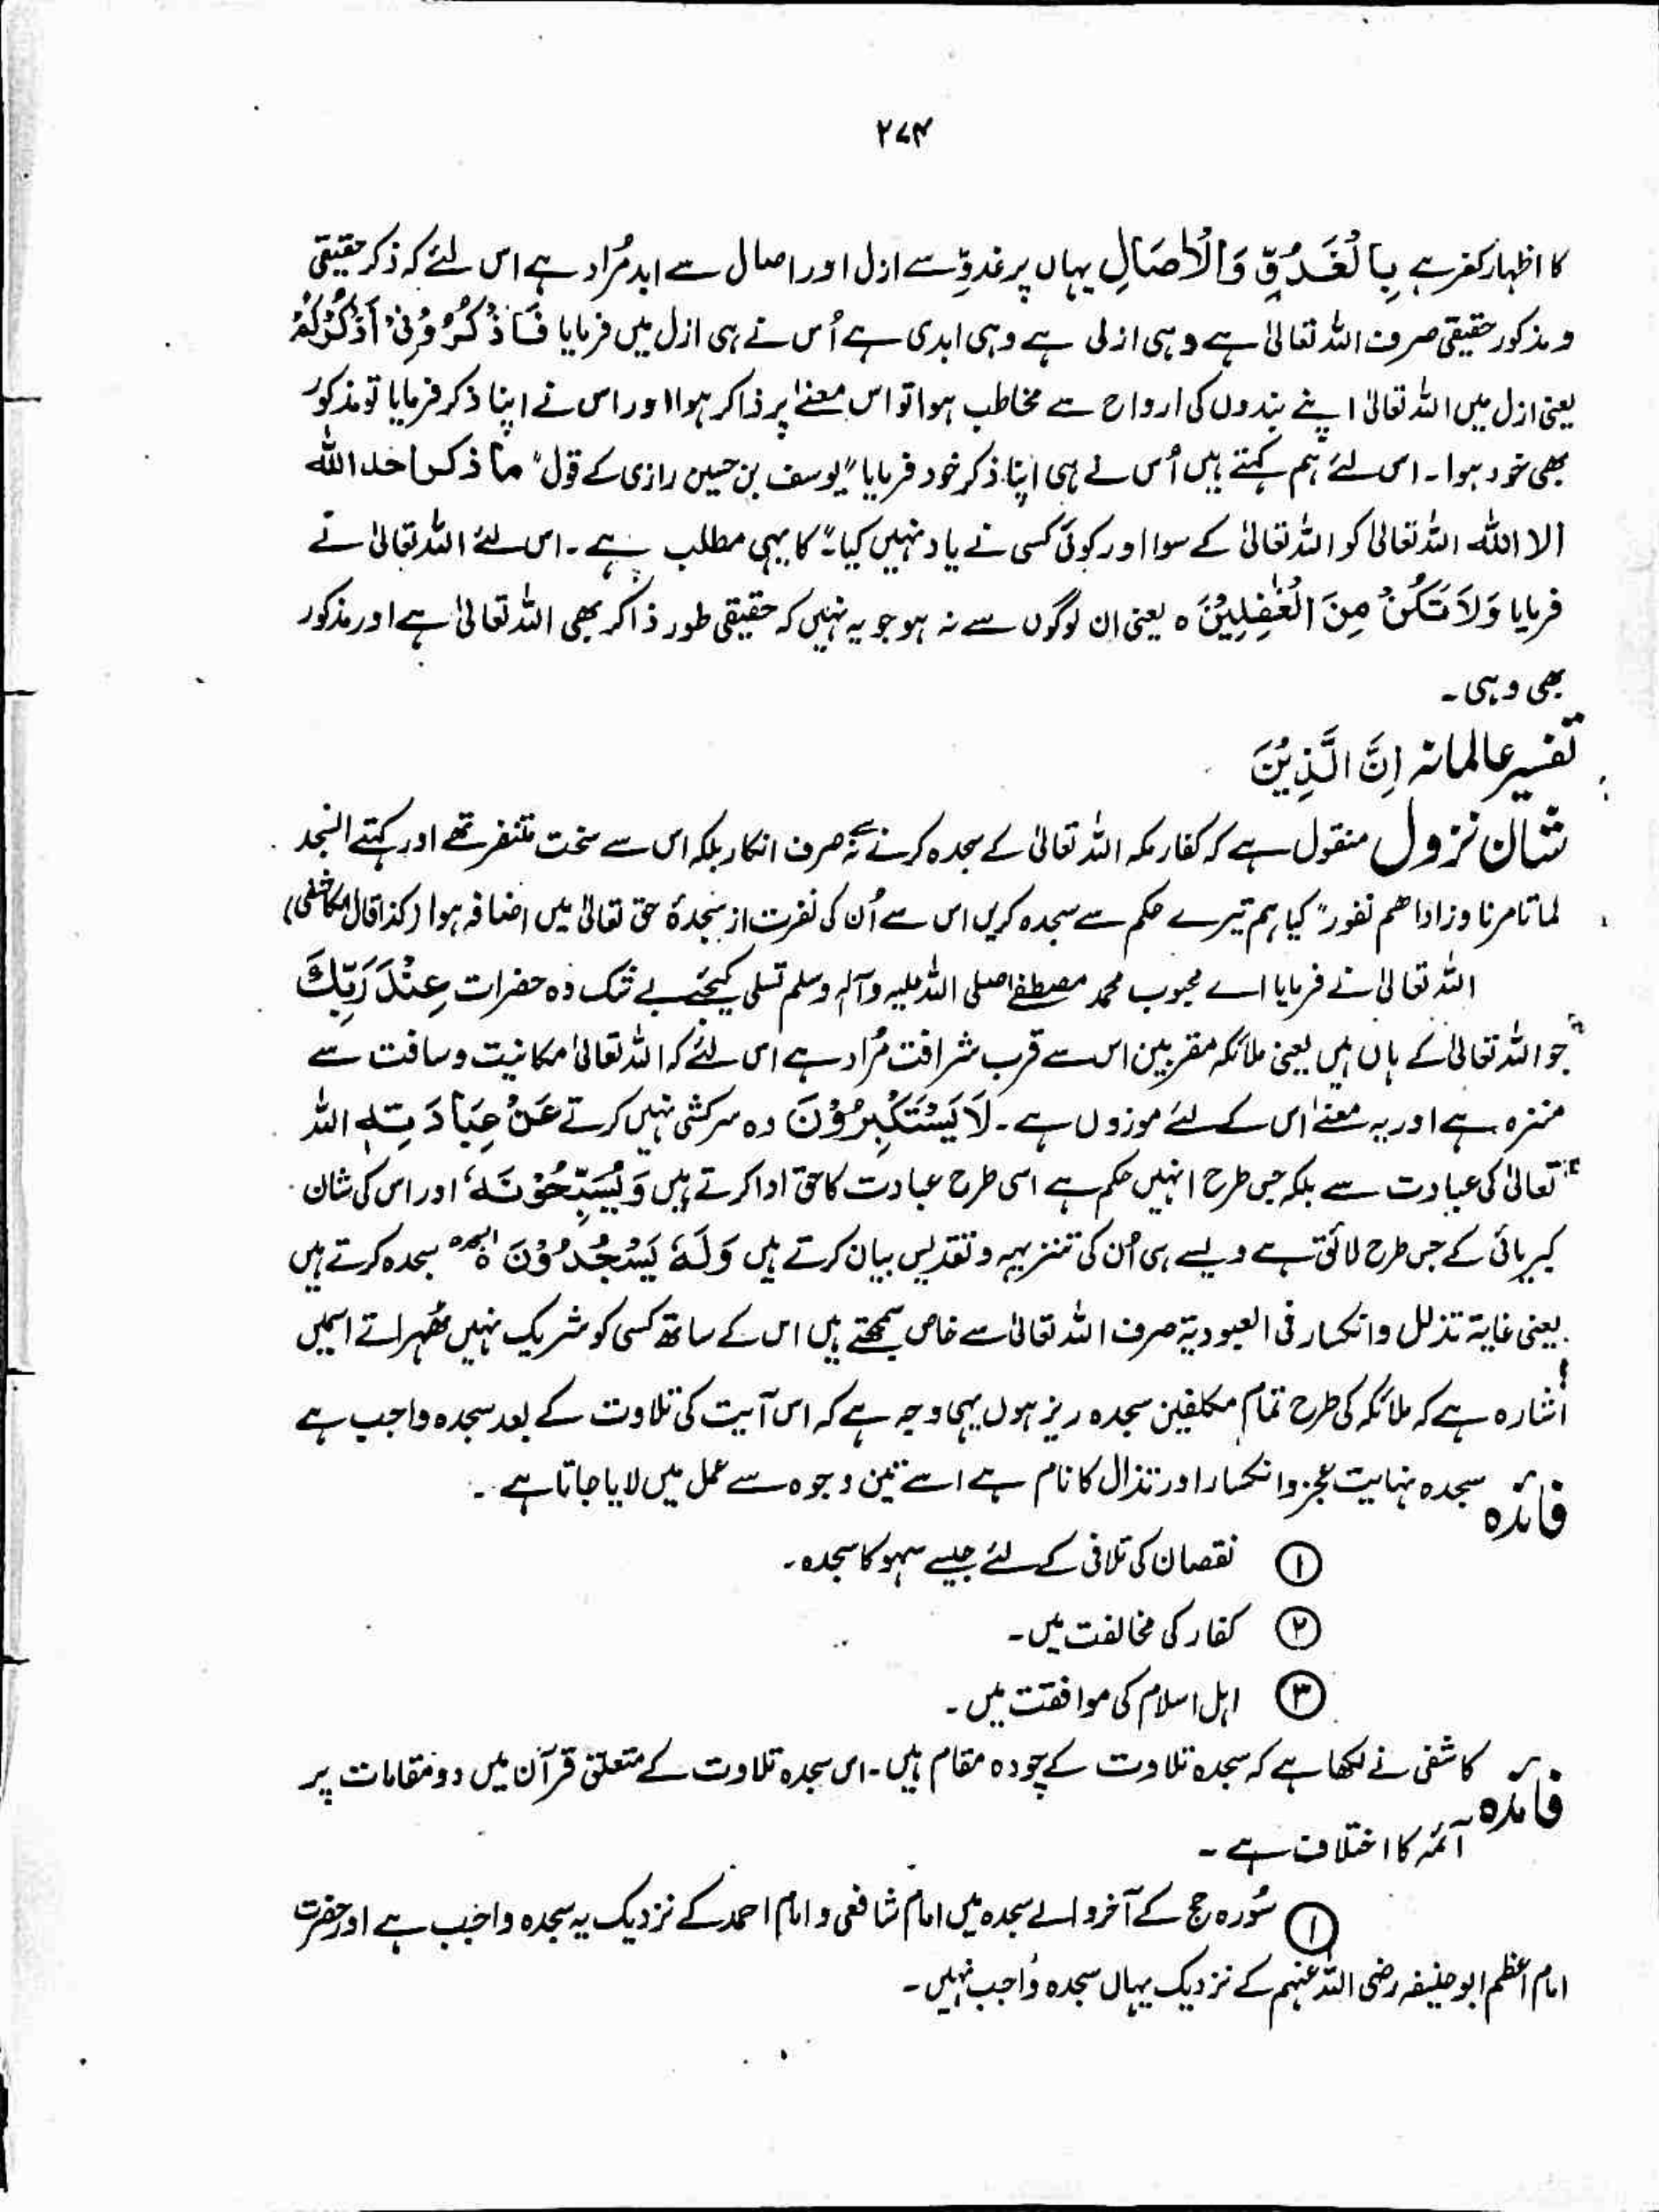 ۲۷۴
کا اظہار کفر ہے بِالْغُدُوِّ وَالْاٰصَالِ یہاں پر غدوِّ سے ازل اور اصال سے ابد مُراد ہے اس لئے کہ ذکر حقیقی
و مذکور حقیقی صرف اللہ تعالیٰ ہے وہی ازلی ہے وہی ابدی ہے اُس نے ہی ازل میں فرمایا فَاذْكُرُوْنِیْ اَذْكُرْكُمْ
یعنی ازل میں اللہ تعالیٰ اپنے بندوں کی ارواح سے مخاطب ہوا تو اس معنےٰ پر ذاکر ہوا اور اس نے اپنا ذکر فرمایا تو مذکور
بھی خود ہوا۔ اس لئے ہم کہتے ہیں اُس نے ہی اپنا ذکر خود فرمایا "یوسف بن حسین رازی کے قول" ما ذکر احد اللہ
الا اللہ اللہ تعالیٰ کو اللہ تعالیٰ کے سوا اور کوئی کسی نے یاد نہیں کیا" کا یہی مطلب ہے۔ اس لئے اللہ تعالیٰ نے
فرمایا وَلَا تَكُنْ مِنَ الْغٰفِلِیْنَ ہ یعنی ان لوگوں سے نہ ہو جو یہ نہیں کہ حقیقی طور ذاکر بھی اللہ تعالیٰ ہے اور مذکور
بھی وہی۔
تفسیر عالمانہ اِنَّ الَّذِیْنَ
شان نزول منقول ہے کہ کفار مکہ اللہ تعالیٰ کے سجدہ کرنے سے نہ صرف انکار بلکہ اس سے سخت متنفر تھے اور کہتے انسجد
لما تامرنا وزادھم نفور" کیا ہم تیرے حکم سے سجدہ کریں اس سے اُن کی نفرت از سجدۂ حق تعالیٰ میں اضافہ ہوا (کذا قال الکاشفی)
اللہ تعالیٰ نے فرمایا اے محبوب محمد مصطفےٰ صلی اللہ علیہ وآلہ وسلم تسلی کیجئے بے شک وہ حضرات عِنْدَ رَبِّكَ
جو اللہ تعالیٰ کے ہاں ہیں یعنی ملائکہ مقربین اس سے قرب شرافت مُراد ہے اس لئے کہ اللہ تعالیٰ مکانیت و مسافت سے
منزہ ہے اور یہ معنےٰ اس کے لئے موزوں ہے۔ لَا یَسْتَكْبِرُوْنَ وہ سرکشی نہیں کرتے عَنْ عِبَادَتِهٖ اللہ
تعالیٰ کی عبادت سے بلکہ جس طرح انہیں حکم ہے اسی طرح عبادت کا حق ادا کرتے ہیں وَیُسَبِّحُوْنَهٗ اور اس کی شان
کبریائی کے جس طرح لائق ہے ویسے ہی اُن کی تنزیہہ و تقدیس بیان کرتے ہیں وَلَهٗ یَسْجُدُوْنَ ہ السجدہ سجدہ کرتے ہیں
یعنی غایۃ تذلل و انکسار فی العبودیۃ صرف اللہ تعالیٰ سے خاص سمجھتے ہیں اس کے ساتھ کسی کو شریک نہیں ٹھہراتے اسمیں
اشارہ ہے کہ ملائکہ کی طرح تمام مکلفین سجدہ ریز ہوں یہی وجہ ہے کہ اس آیت کی تلاوت کے بعد سجدہ واجب ہے
فائدہ سجدہ نہایت عجز و انکسار اور تذلل کا نام ہے اسے تین وجوہ سے عمل میں لایا جاتا ہے۔
① نقصان کی تلافی کے لئے جیسے سہو کا سجدہ۔
② کفار کی مخالفت میں۔
③ اہل اسلام کی موافقت میں۔
فائدہ کاشفی نے لکھا ہے کہ سجدہ تلاوت کے چودہ مقام ہیں۔ اس سجدہ تلاوت کے متعلق قرآن میں دو مقامات پر
آئمہ کا اختلاف ہے۔
① سُورہ حج کے آخر والے سجدہ میں امام شافعی و امام احمد کے نزدیک یہ سجدہ واجب ہے اور حضرت
امام اعظم ابو حنیفہ رضی اللہ عنہم کے نزدیک یہاں سجدہ واجب نہیں۔